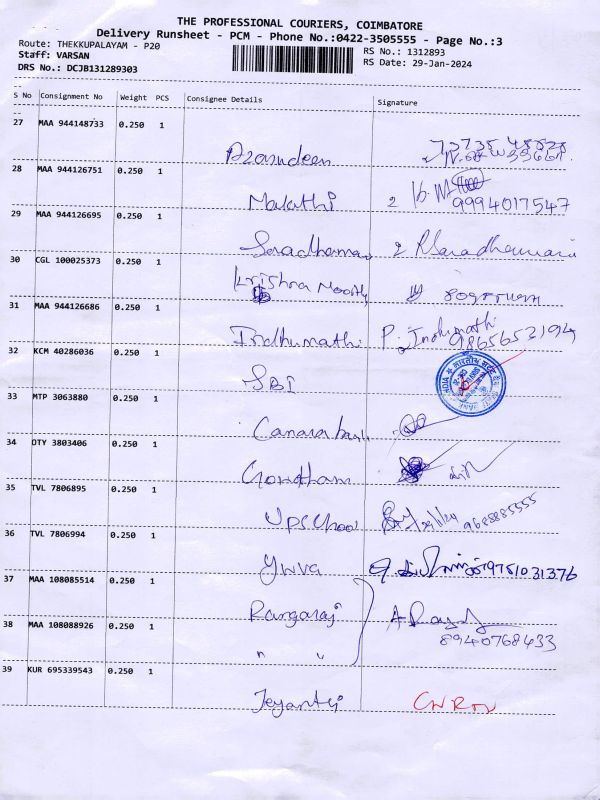 THE PROFESSIONAL COURIERS, COIMBATORE
Delivery Runsheet - PCM - Phone No.:0422-3505555 - Page No.:3
Route: THEKKUPALAYAM - P20
RS No.: 1312893
Staff: VARSAN
RS Date: 29-Jan-2024
DRS No.: DCJB131289303
S No Consignment No Weight PCS Consignee Details Signature
27 MAA 944148733 0.250 1
28 MAA 944126751 0.250 1
Malathi 2 9994017547
29 MAA 944126695 0.250 1
30 CGL 100025373 0.250 1
Krishna Moorthy
31 MAA 944126686 0.250 1
Indhumathi P. Indhumathi
9865653194
32 KCM 40286036 0.250 1
SBI
33 MTP 3063880 0.250 1
Canara bank
34 OTY 3803406 0.250 1
Gowtham
35 TVL 7806895 0.250 1
29/1/24 9688885555
36 TVL 7806994 0.250 1
Yuva 9751031376
37 MAA 108085514 0.250 1
Rangaraj
8940768433
38 MAA 108088926 0.250 1
" "
39 KUR 695339543 0.250 1
Jeyanthi